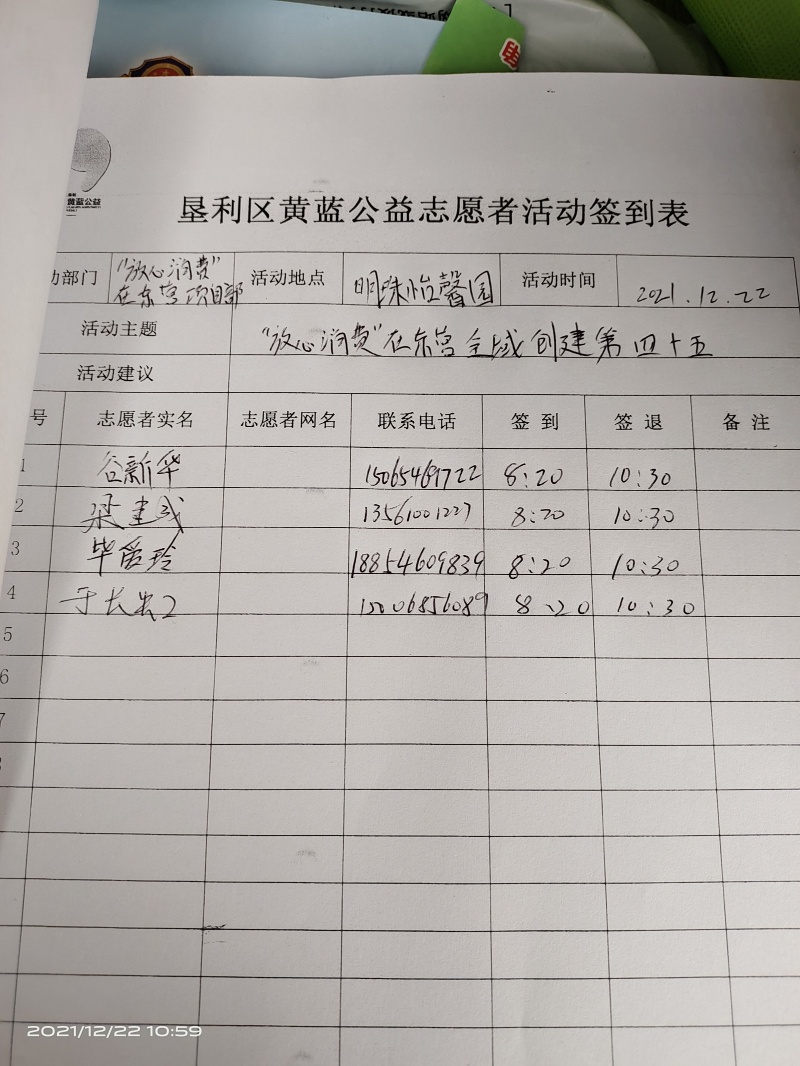 黄蓝公益
垦利区黄蓝公益志愿者活动签到表
动部门 "放心消费"在东营项目部 活动地点 明珠怡馨园 活动时间 2021.12.22
活动主题 "放心消费"在东营全域创建第四十五
活动建议
号 志愿者实名 志愿者网名 联系电话 签到 签退 备注
1 谷新华 15065469722 8:20 10:30
2 梁建武 13561001227 8:20 10:30
3 毕爱玲 18854609839 8:20 10:30
4 于长 15006856089 8:20 10:30
5
6
7
2021/12/22 10:59